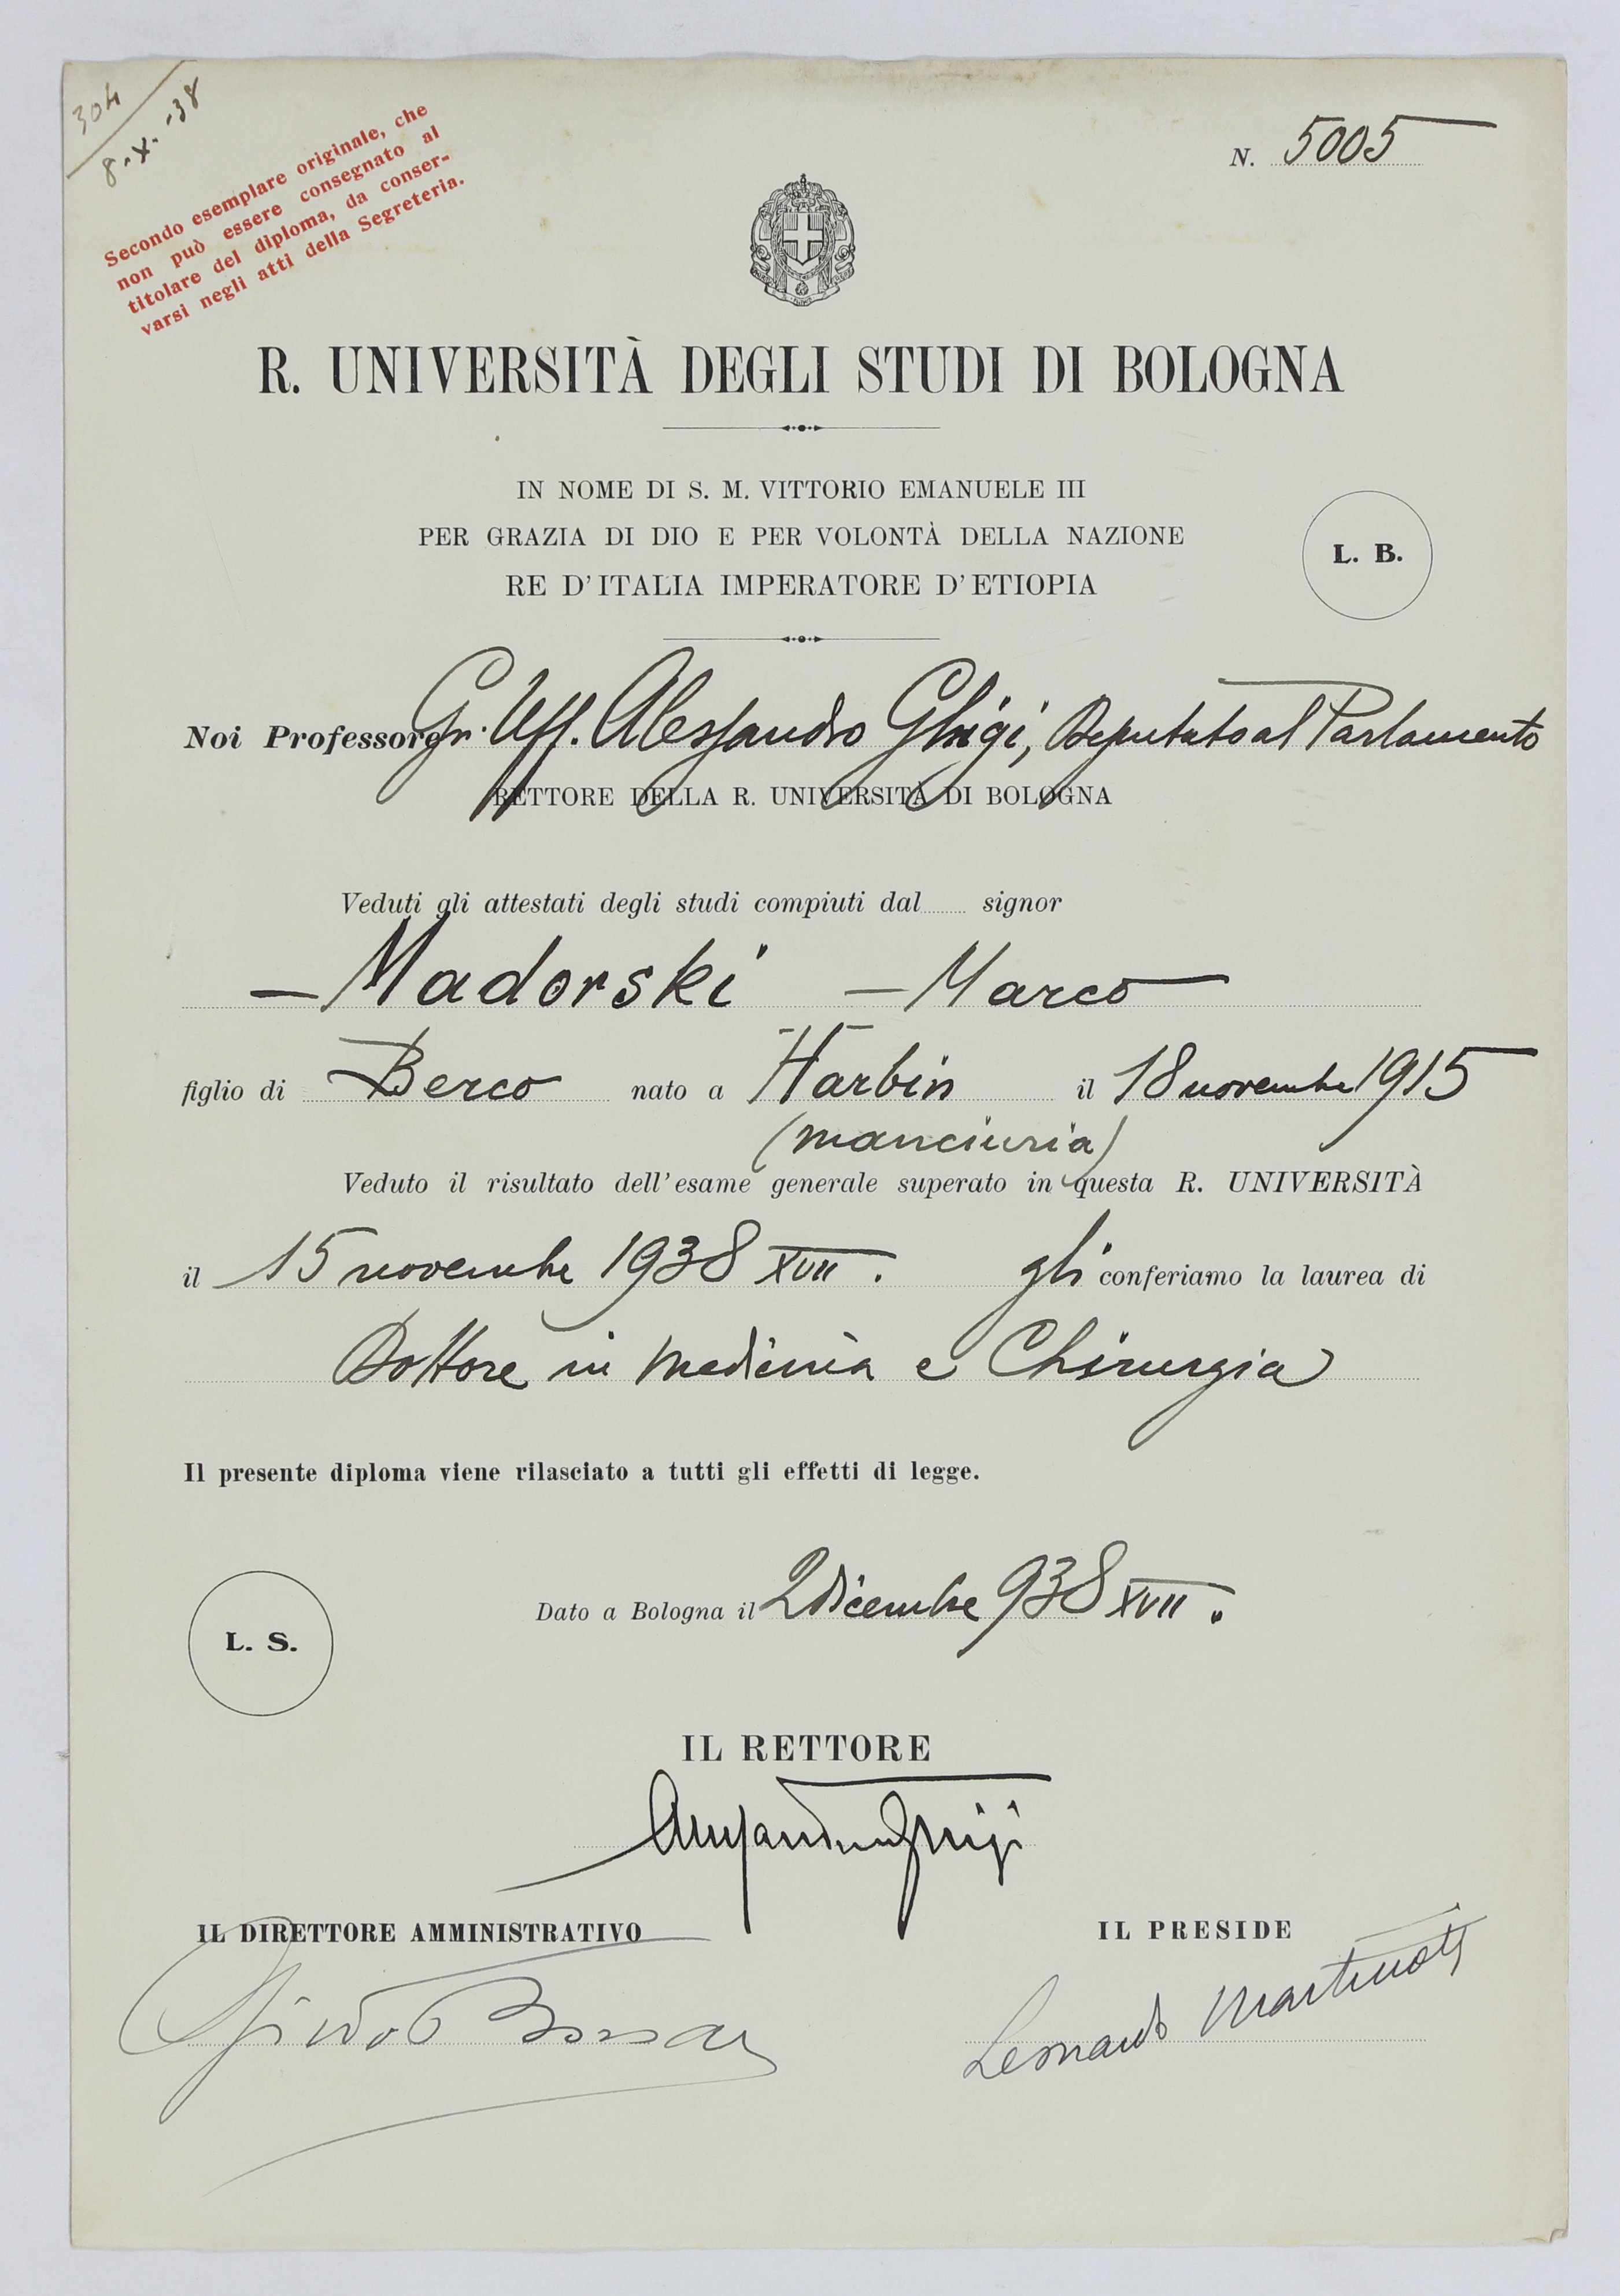 304
8-X.-38
Secondo esemplare originale, che
non può essere consegnato al
titolare del diploma, da conser-
varsi negli atti della Segreteria.
N. 5005
R. UNIVERSITÀ DEGLI STUDI DI BOLOGNA
IN NOME DI S. M. VITTORIO EMANUELE III
PER GRAZIA DI DIO E PER VOLONTÀ DELLA NAZIONE
RE D'ITALIA IMPERATORE D'ETIOPIA
L. B.
Noi Professore Gr. Uff. Alessandro Ghigi, Deputato al Parlamento
RETTORE DELLA R. UNIVERSITÀ DI BOLOGNA
Veduti gli attestati degli studi compiuti dal signor
– Madorski – Marco –
figlio di Berco nato a Harbin il 18 novembre 1915
(manciuria)
Veduto il risultato dell'esame generale superato in questa R. UNIVERSITÀ
il 15 novembre 1938 XVII. gli conferiamo la laurea di
Dottore in Medicina e Chirurgia
Il presente diploma viene rilasciato a tutti gli effetti di legge.
Dato a Bologna il 2 Dicembre 938 XVII.
L. S.
IL RETTORE
Alessandro Ghigi
IL DIRETTORE AMMINISTRATIVO
IL PRESIDE
Leonardo Martinotti